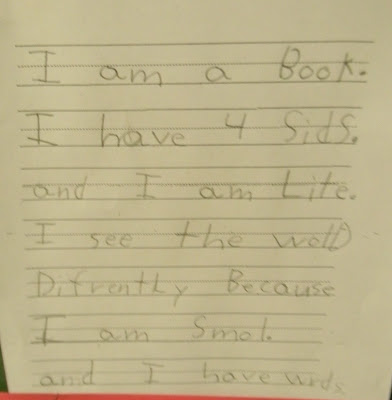 I am a Book.
I have 4 Sids.
and I am Lite.
I see the wolD
Difrently Because
I am Smol.
and I have wrds